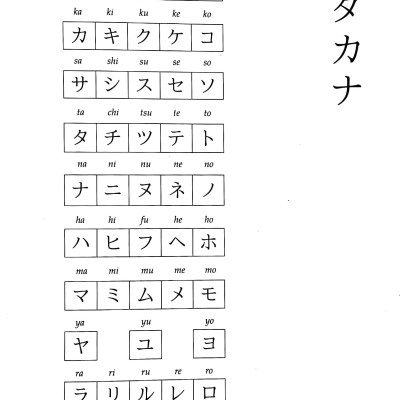 ka ki ku ke ko
カ キ ク ケ コ
sa shi su se so
サ シ ス セ ソ
ta chi tsu te to
タ チ ツ テ ト
na ni nu ne no
ナ ニ ヌ ネ ノ
ha hi fu he ho
ハ ヒ フ ヘ ホ
ma mi mu me mo
マ ミ ム メ モ
ya yu yo
ヤ ユ ヨ
ra ri ru re ro
ラ リ ル レ ロ
タカナ